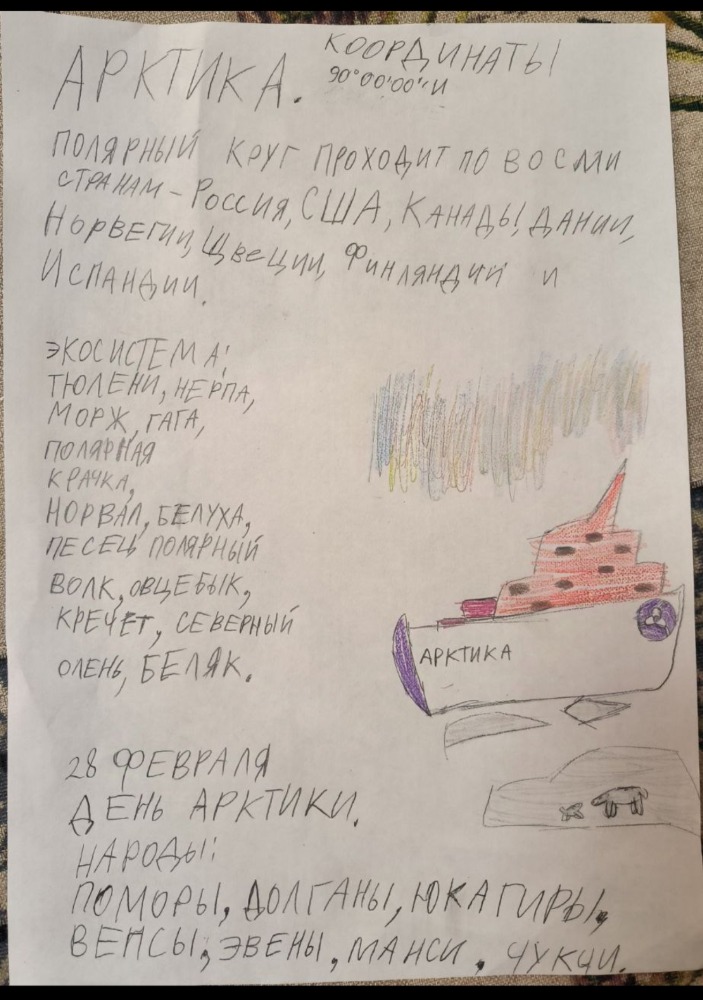 АРКТИКА.
КООРДИНАТЫ
90°00'00"И
ПОЛЯРНЫЙ КРУГ ПРОХОДИТ ПО ВОСМИ
СТРАНАМ - РОССИЯ, США, КАНАДЫ, ДАНИИ,
НОРВЕГИИ, ЩВЕЦИИ, ФИНЛЯНДИЙ И
ИСПАНДИИ.
ЭКОСИСТЕМА:
ТЮЛЕНИ, НЕРПА,
МОРЖ, ГАГА,
ПОЛЯРНАЯ
КРАЧКА,
НОРВАЛ, БЕЛУХА,
ПЕСЕЦ ПОЛЯРНЫЙ
ВОЛК, ОВЦЕБЫК,
КРЕЧЕТ, СЕВЕРНЫЙ
ОЛЕНЬ, БЕЛЯК.
АРКТИКА
28 ФЕВРАЛЯ
ДЕНЬ АРКТИКИ.
НАРОДЫ:
ПОМОРЫ, ДОЛГАНЫ, ЮКАГИРЫ,
ВЕПСЫ, ЭВЕНЫ, МАНСИ, ЧУКЧИ.